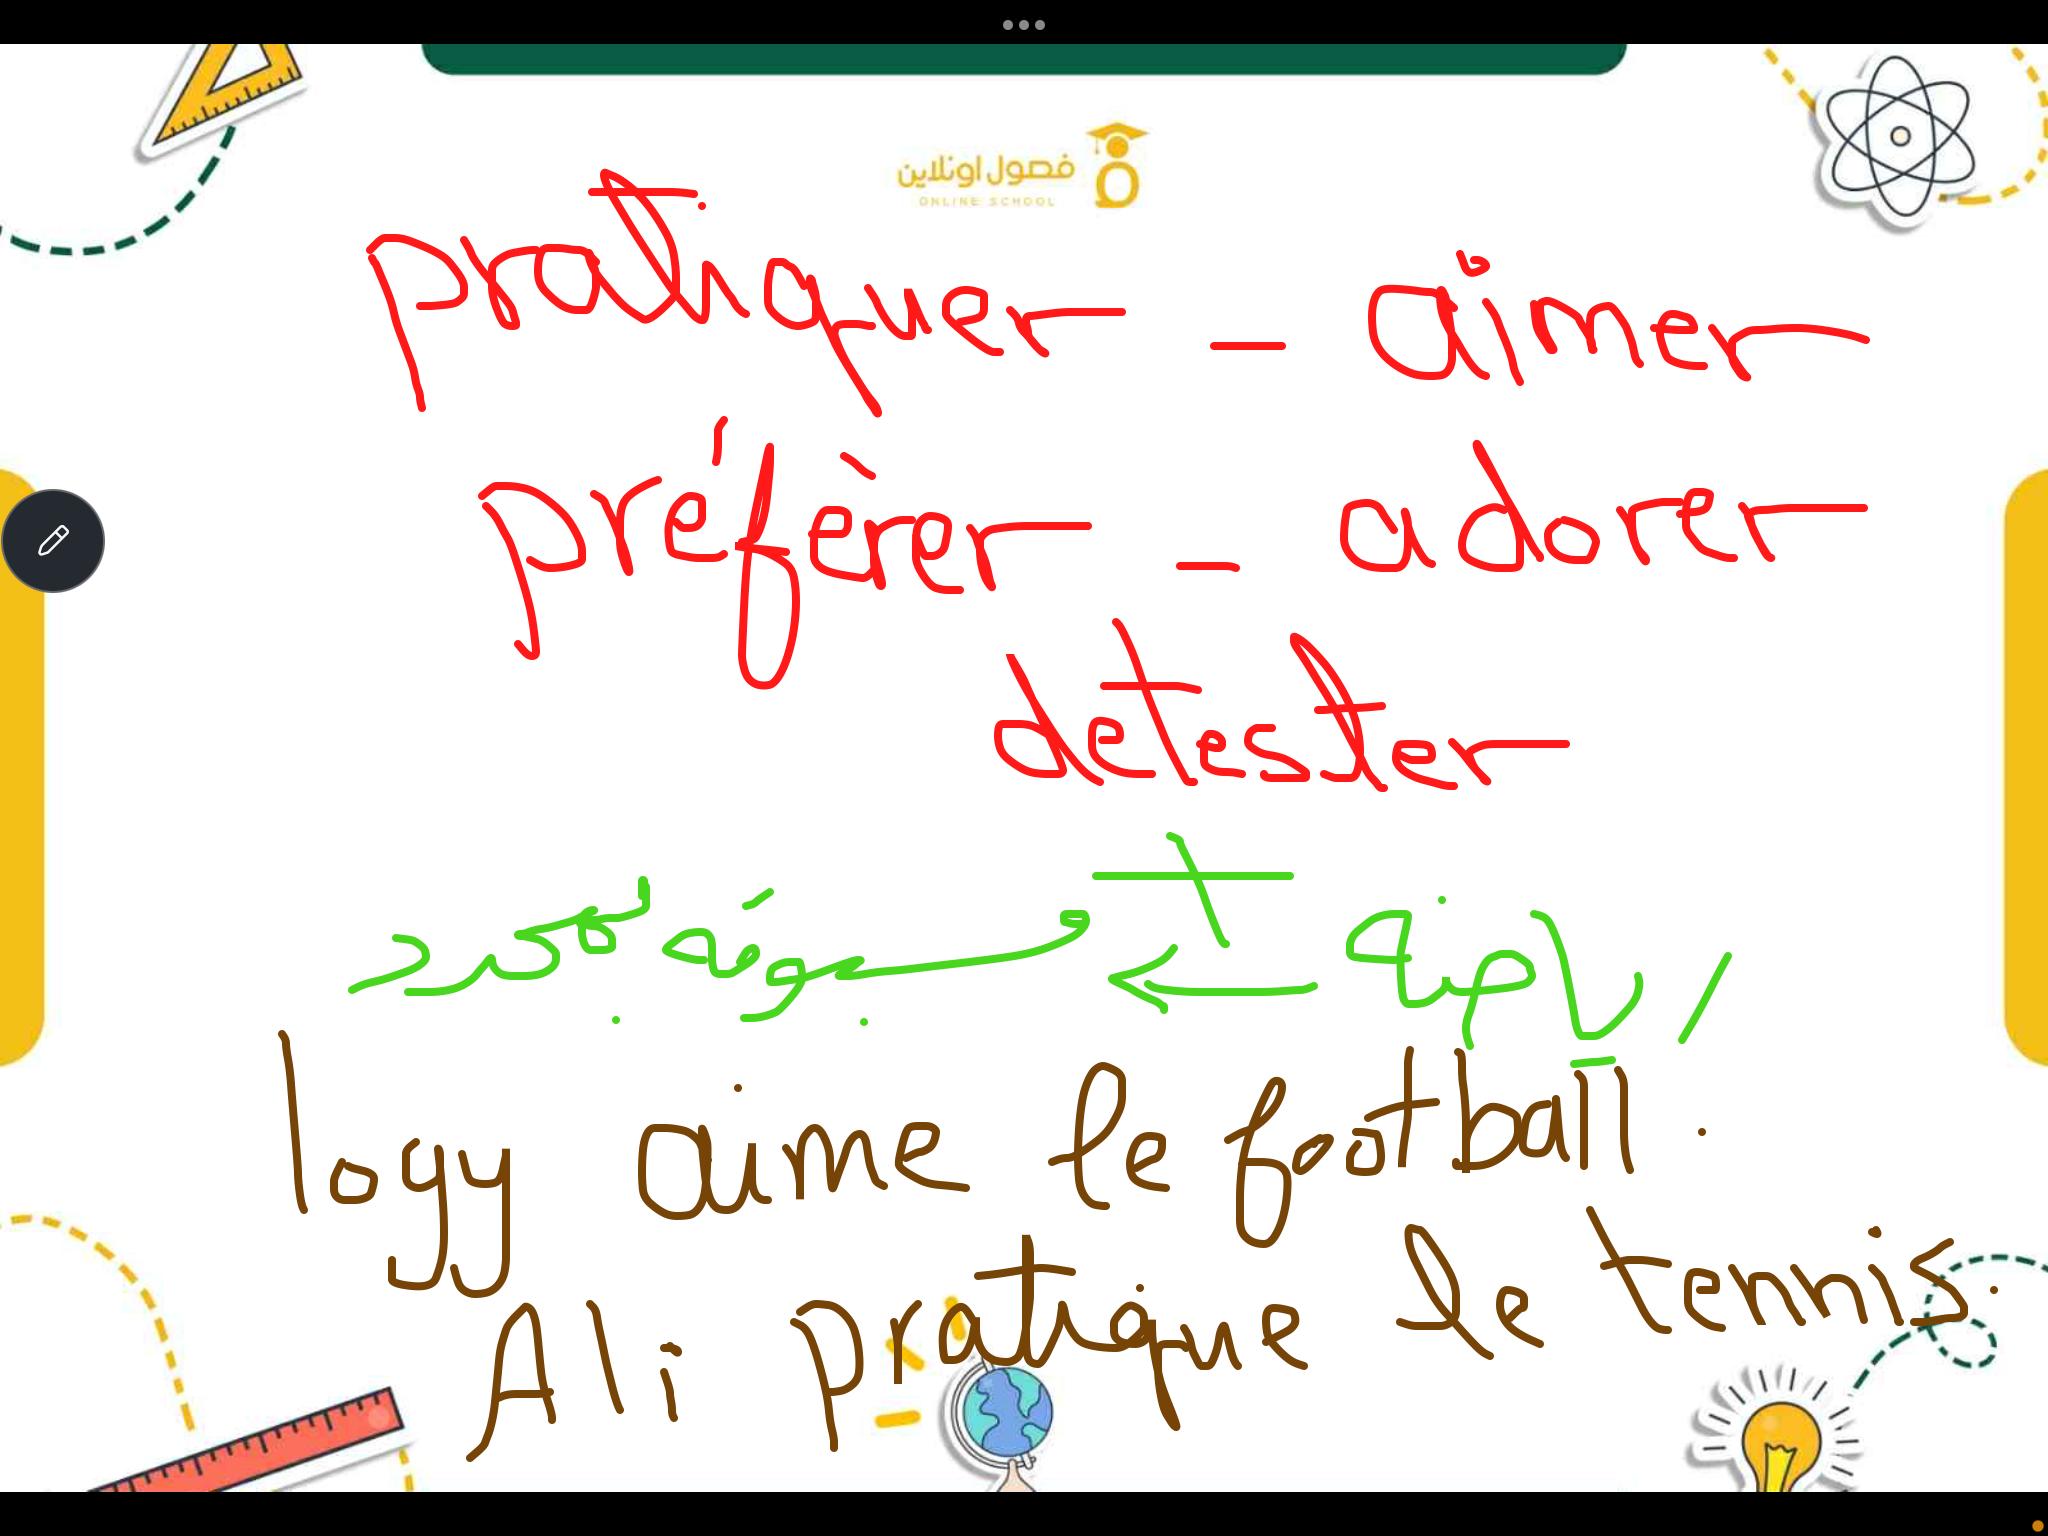 فصول اونلاين
ONLINE SCHOOL
pratiquer - aimer
préfèrer - adorer
detester
رياضة + ← يسبقه
logy aime le football.
Ali pratique le tennis.